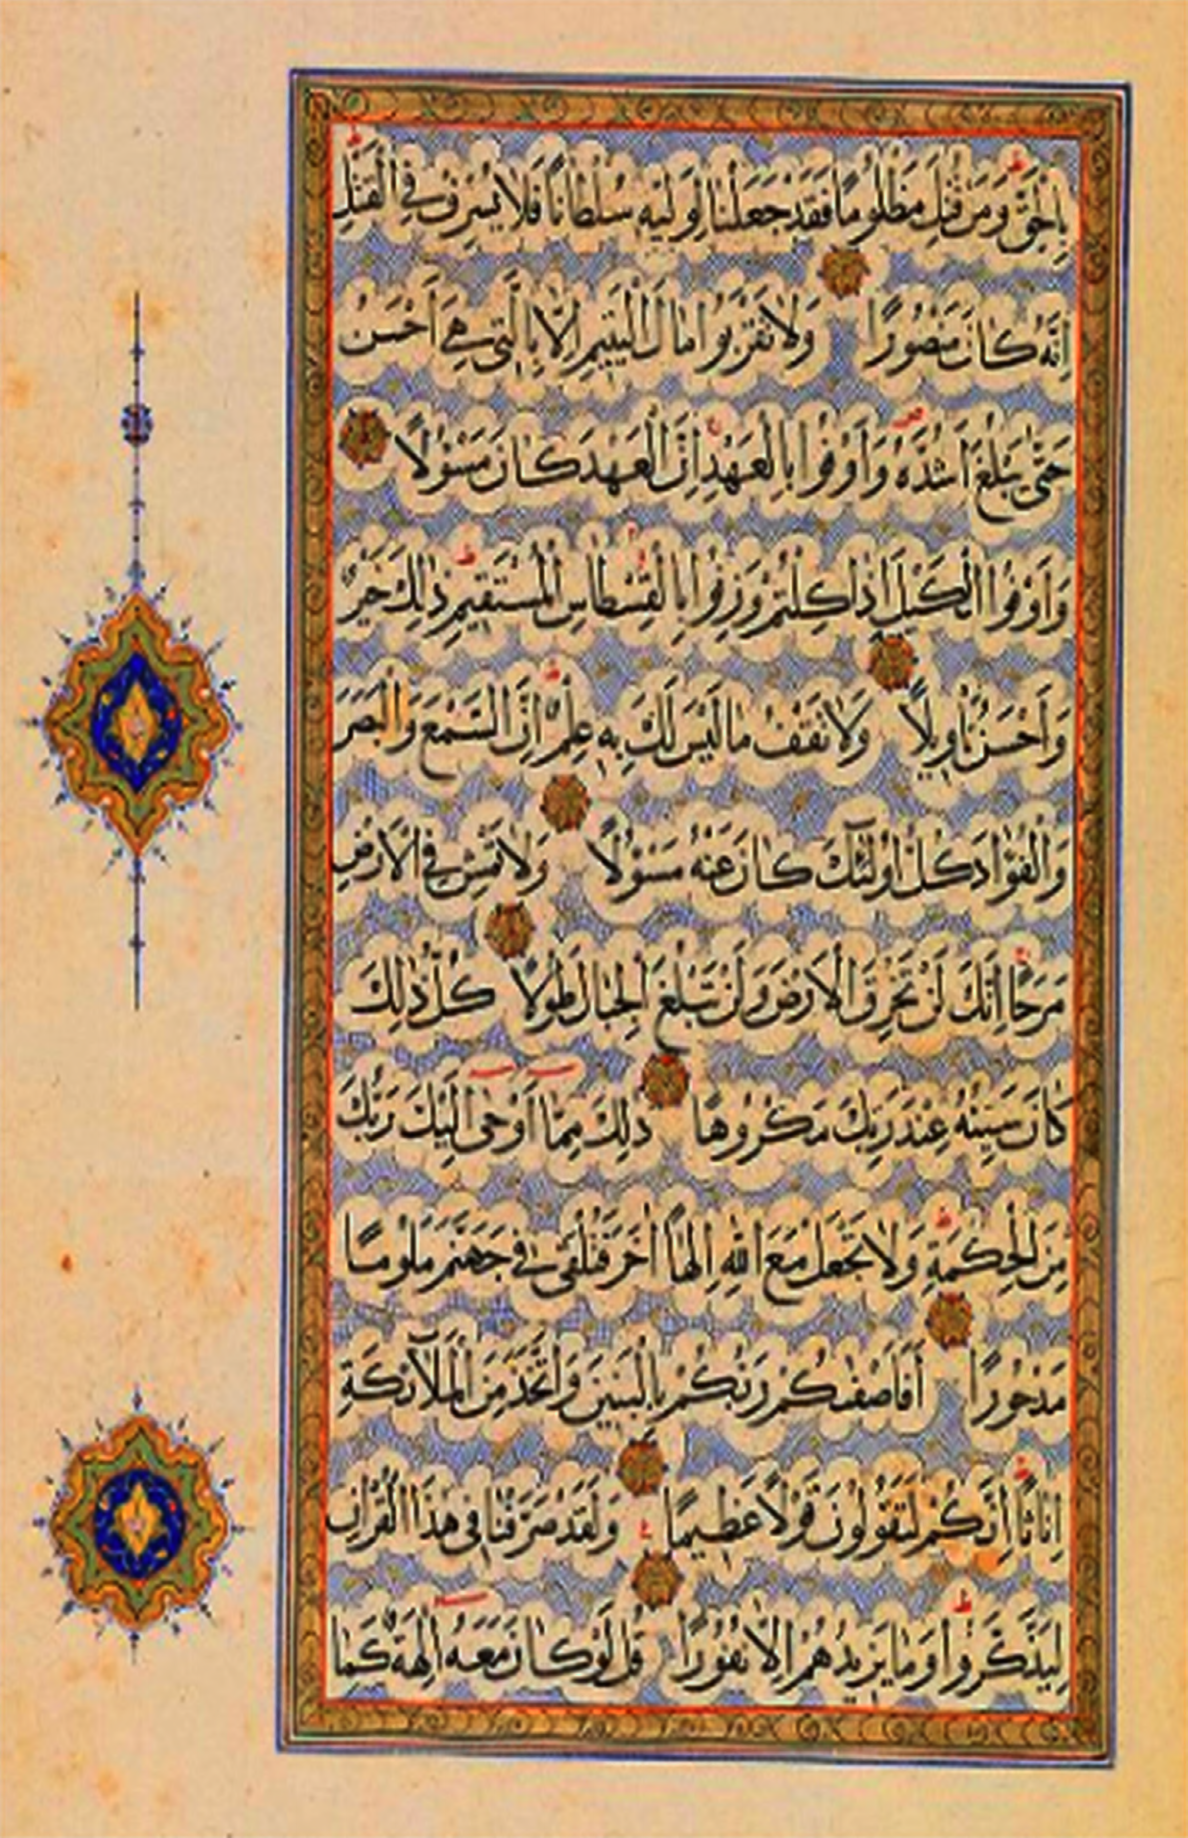 بِالْحَقِّ وَمَنْ قُتِلَ مَظْلُومًا فَقَدْ جَعَلْنَا لِوَلِيِّهِ سُلْطَانًا فَلَا يُسْرِفْ فِي الْقَتْلِ
اِنَّهُ كَانَ مَنْصُورًا وَلَا تَقْرَبُوا مَالَ الْيَتِيمِ اِلَّا بِالَّتِي هِيَ اَحْسَنُ
حَتَّى يَبْلُغَ اَشُدَّهُ وَاَوْفُوا بِالْعَهْدِ اِنَّ الْعَهْدَ كَانَ مَسْؤُلًا
وَاَوْفُوا الْكَيْلَ اِذَا كِلْتُمْ وَزِنُوا بِالْقِسْطَاسِ الْمُسْتَقِيمِ ذٰلِكَ خَيْرٌ
وَاَحْسَنُ تَاْوِيلًا وَلَا تَقْفُ مَا لَيْسَ لَكَ بِهِ عِلْمٌ اِنَّ السَّمْعَ وَالْبَصَرَ
وَالْفُؤَادَ كُلُّ اُولٰٓئِكَ كَانَ عَنْهُ مَسْؤُلًا وَلَا تَمْشِ فِي الْاَرْضِ
مَرَحًا اِنَّكَ لَنْ تَخْرِقَ الْاَرْضَ وَلَنْ تَبْلُغَ الْجِبَالَ طُولًا كُلُّ ذٰلِكَ
كَانَ سَيِّئُهُ عِنْدَ رَبِّكَ مَكْرُوهًا ذٰلِكَ مِمَّا اَوْحٰى اِلَيْكَ رَبُّكَ
مِنَ الْحِكْمَةِ وَلَا تَجْعَلْ مَعَ اللّٰهِ اِلٰهًا اٰخَرَ فَتُلْقٰى فِي جَهَنَّمَ مَلُومًا
مَدْحُورًا اَفَاَصْفٰىكُمْ رَبُّكُمْ بِالْبَنِينَ وَاتَّخَذَ مِنَ الْمَلٰٓئِكَةِ
اِنَاثًا اِنَّكُمْ لَتَقُولُونَ قَوْلًا عَظِيمًا ع وَلَقَدْ صَرَّفْنَا فِي هٰذَا الْقُرْاٰنِ
لِيَذَّكَّرُوا وَمَا يَزِيدُهُمْ اِلَّا نُفُورًا قُلْ لَوْ كَانَ مَعَهُ اٰلِهَةٌ كَمَا